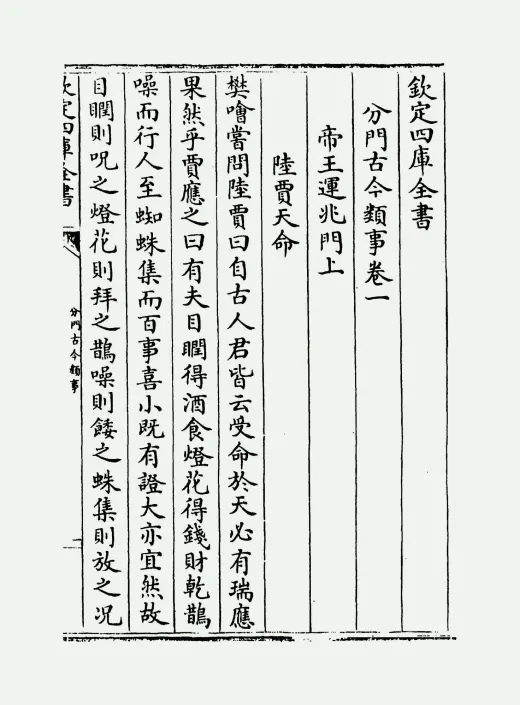 欽定四庫全書
分門古今類事卷一
帝王運兆門上
陸賈天命
樊噲嘗問陸賈曰自古人君皆云受命於天必有瑞應
果然乎賈應之曰有夫目瞤得酒食燈花得錢財乾鵲
噪而行人至蜘蛛集而百事喜小既有證大亦宜然故
目瞤則呪之燈花則拜之鵲噪則餧之蛛集則放之况
欽定四庫全書
分門古今類事
一